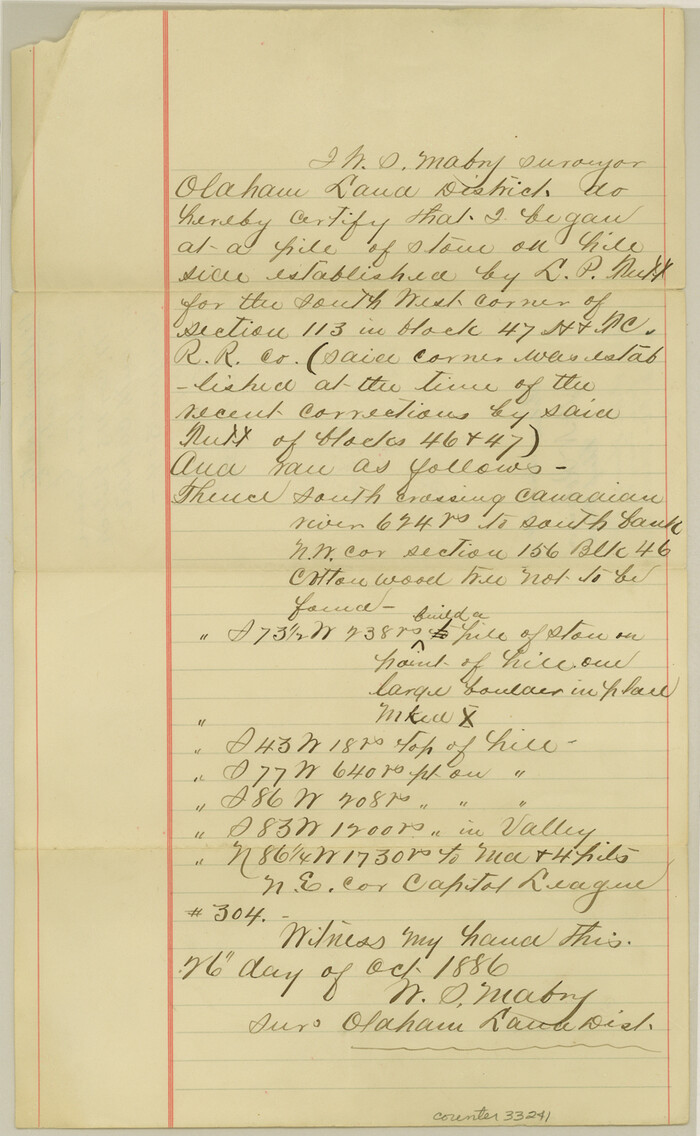 I W. S. Mabry surveyor
Oldham Land District do
hereby certify that I began
at a pile of stone on hill
side established by L. P. Nutt
for the South West corner of
section 113 in block 47 H & T C.
R. R. Co. (said corner was estab
-lished at the time of the
recent corrections by said
Nutt of blocks 46 & 47)
And ran as follows-
Thence South crossing Canadian
river 624 vrs to south bank
N.W. cor section 156 Blk 46
Cotton wood tree not to be
found-
" S 73½ W 238 vrs build a pile of stone on
point of hill one
large boulder in place
" Mked X
" S 43 W 18 vrs top of hill-
" S 77 W 640 vrs pt on "
" S 86 W 208 vrs " " "
" S 83 W 1200 vrs " in Valley
" N 86¼ W 1730 vrs to Md & 4 pits
N. E. cor Capitol League
# 304.-
Witness my hand this.
26" day of Oct 1886
W. S. Mabry
Surv Oldham Land Dist.
counter 33241